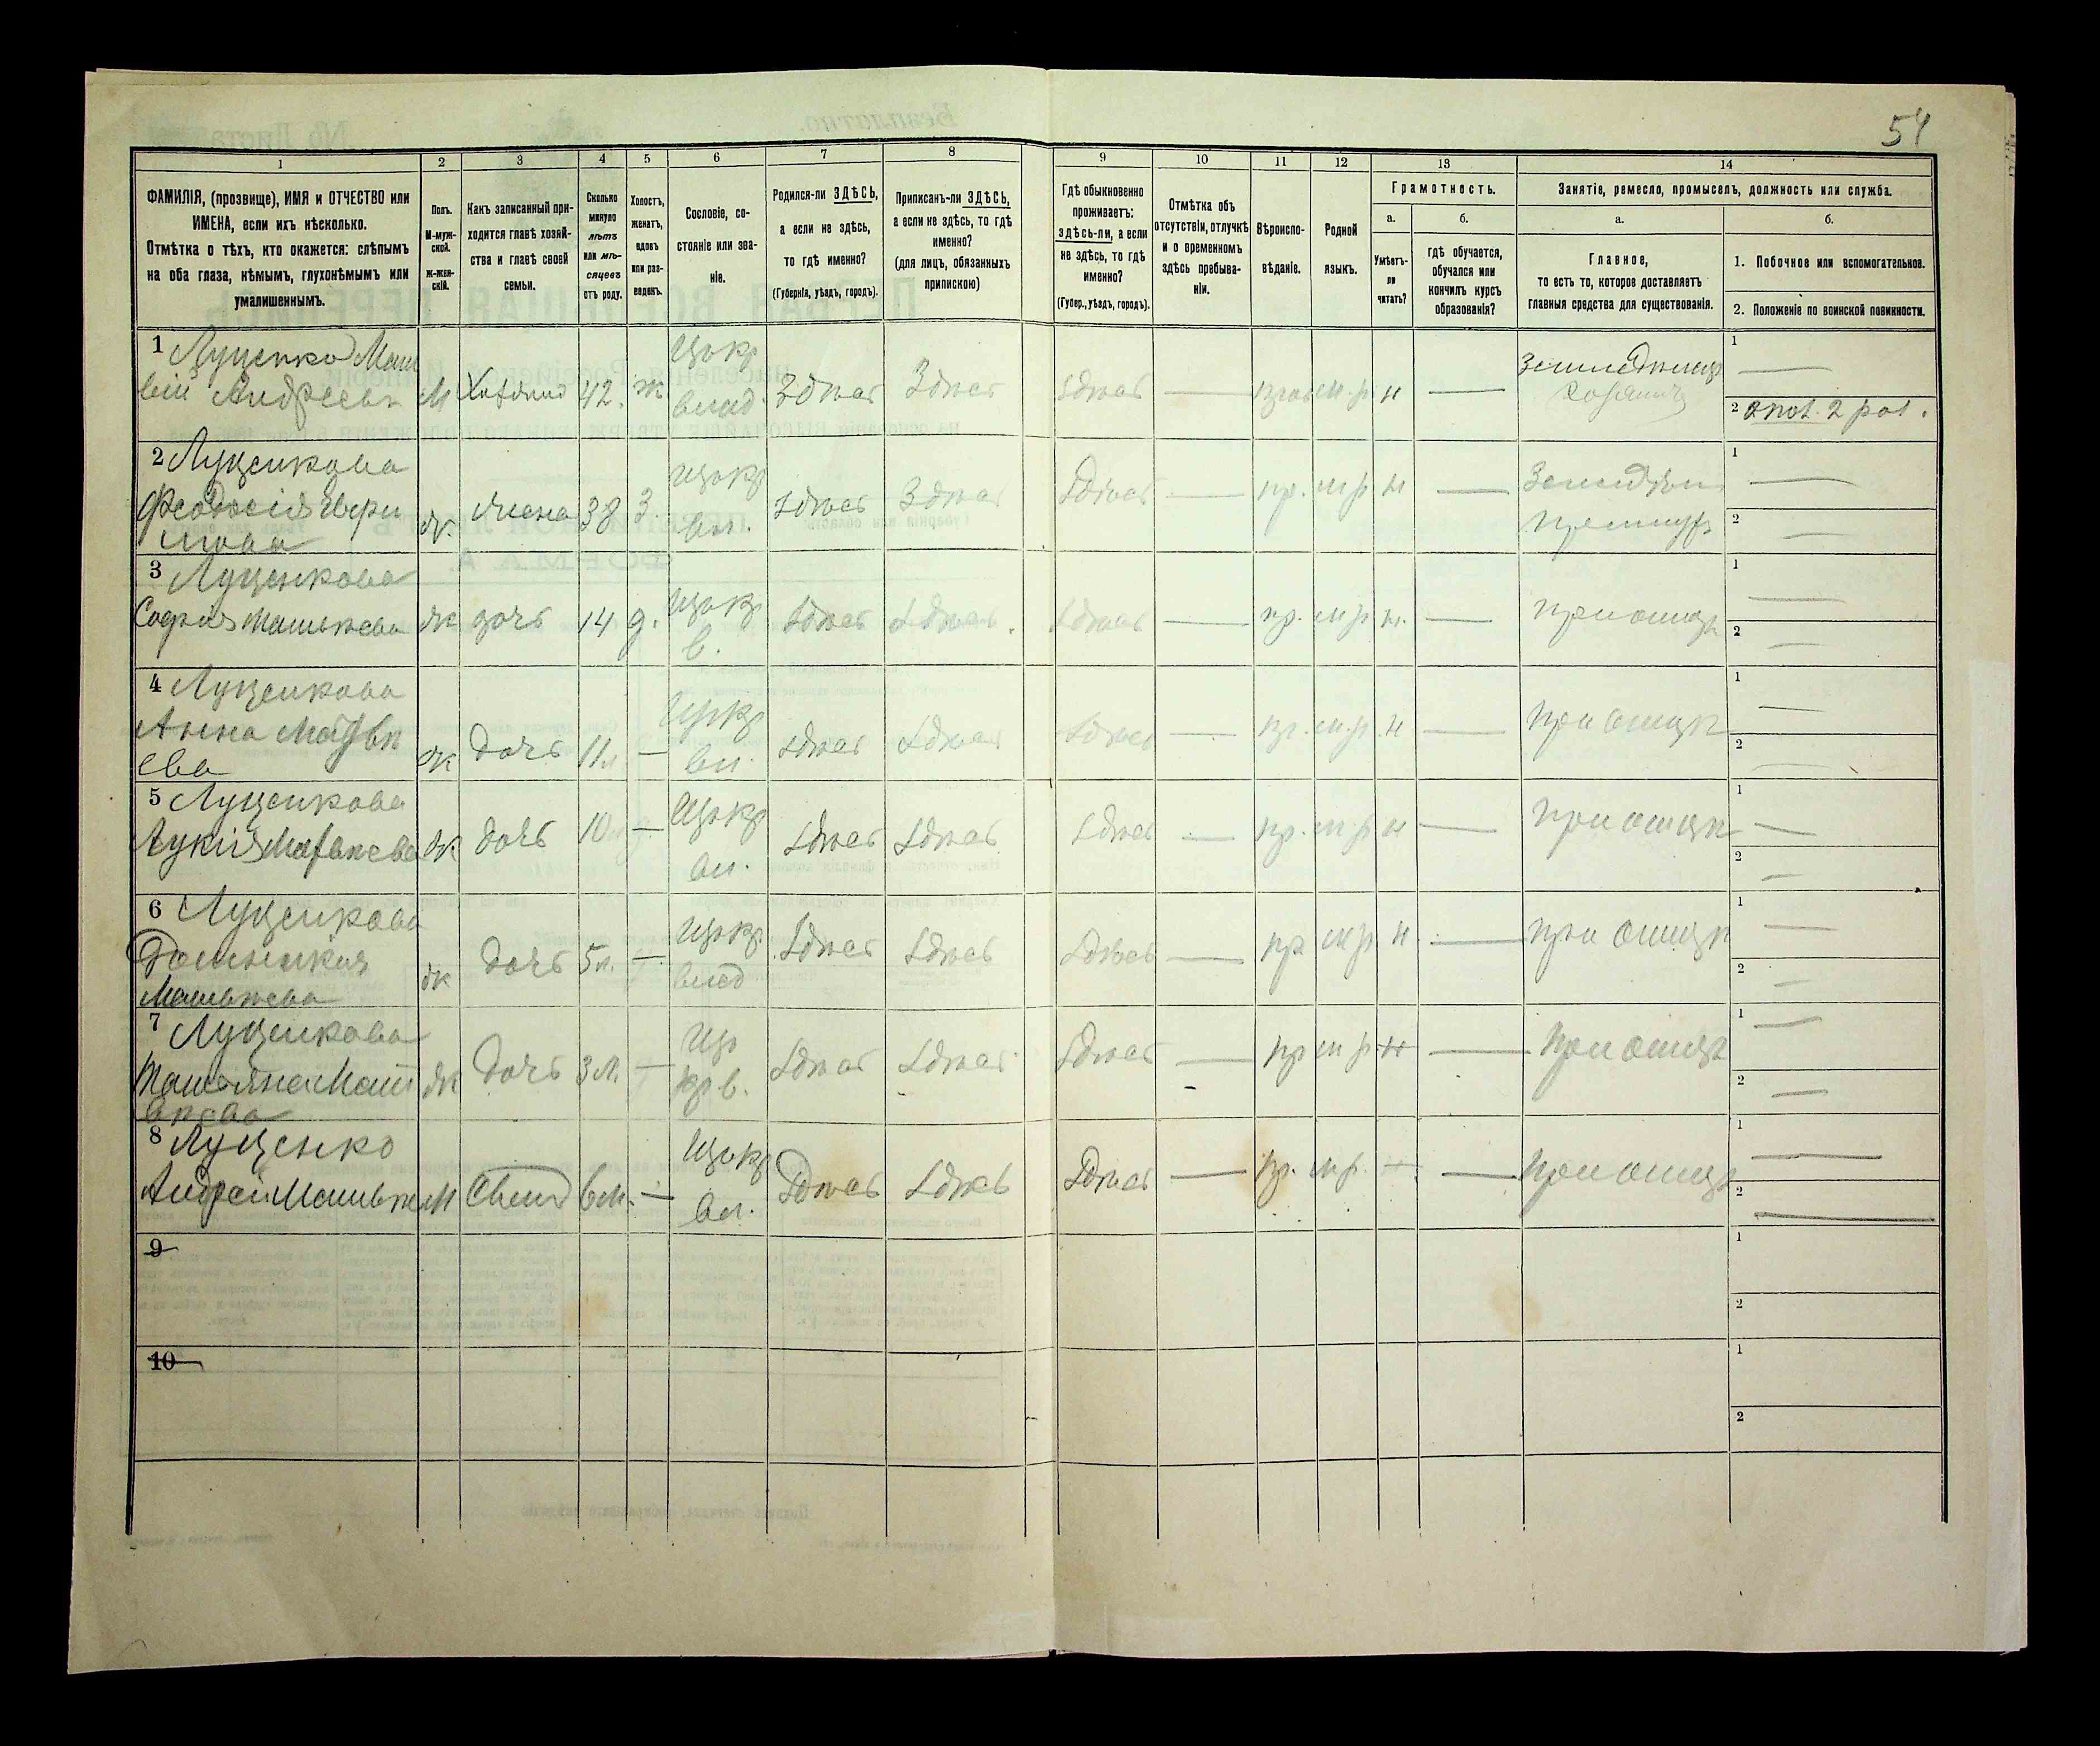 54
1 2 3 4 5 6 7 8 9 10 11 12 13 14
ФАМИЛІЯ, (прозвище), ИМЯ и ОТЧЕСТВО или
ИМЕНА, если ихъ нѣсколько.
Отмѣтка о тѣхъ, кто окажется: слѣпымъ
на оба глаза, нѣмымъ, глухонѣмымъ или
умалишеннымъ.
Полъ.
М-муж-
ской.
ж-жен-
скій.
Какъ записанный при-
ходится главѣ хозяй-
ства и главѣ своей
семьи.
Сколько
минуло
лѣтъ
или мѣ-
сяцевъ
отъ роду.
Холостъ,
женатъ,
вдовъ
или раз-
веденъ.
Сословіе, со-
стояніе или зва-
ніе.
Родился-ли ЗДѢСЬ,
а если не здѣсь,
то гдѣ именно?
(Губернія, уѣздъ, городъ).
Приписанъ-ли ЗДѢСЬ,
а если не здѣсь, то гдѣ
именно?
(для лицъ, обязанныхъ
припискою)
Гдѣ обыкновенно
проживаетъ:
здѣсь-ли, а если
не здѣсь, то гдѣ
именно?
(Губер., уѣздъ, городъ).
Отмѣтка объ
отсутствіи, отлучкѣ
и о временномъ
здѣсь пребыва-
ніи.
Вѣроиспо-
вѣданіе.
Родной
языкъ.
Грамотность.
а.
Умѣетъ-
ли
читать?
б.
гдѣ обучается,
обучался или
кончилъ курсъ
образованія?
Занятіе, ремесло, промыселъ, должность или служба.
а.
Главное,
то есть то, которое доставляетъ
главныя средства для существованія.
б.
1. Побочное или вспомогательное.
2. Положеніе по воинской повинности.
1 Луценко Мат
вій Андреевъ М Хозяинъ 42. ж Здѣсь Здѣсь здѣсь — м.р н —
1 —
2 2 раз.
2 Луценкова
Феодосія
ж. жена 38 З. здѣсь Здѣсь Здѣсь — пр. м р н —
1 —
2 —
3 Луценкова
Софія Матвѣева ж дочь 14 д. здѣсь здѣсь здѣсь — пр. м р н. — при отцѣ
1 —
2 —
4 Луценкова
Анна Матвѣ
ева ж дочь 11 л — вл. здѣсь здѣсь здѣсь — пр. м.р. н — при отцѣ
1 —
2 —
5 Луценкова
Лукія Матвѣева ж дочь 10 л — вл. здѣсь здѣсь здѣсь — пр. м.р н — при отцѣ
1 —
2 —
6 Луценкова
Домникія
Матвѣева ж дочь 5 л. — здѣсь здѣсь здѣсь — пр м р. н — при отцѣ
1 —
2 —
7 Луценкова
Татьяна Мат
вѣева ж дочь 3 л. — кр в. здѣсь здѣсь здѣсь — пр м р н — при отцѣ
1 —
2 —
8 Луценко
Андрей Матвѣев М Сынъ 6 м. — вл. здѣсь здѣсь здѣсь — пр. м р. — — при отцѣ
1 —
2 —
9
1
2
10
1
2